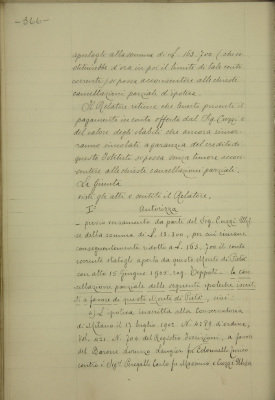 -366-
apertogli alla somma di £. 163.700 (
) d'ora in poi il limite di tale conto
corrente) si possa acconsentire alle chieste
cancellazioni parziali d'ipoteca.
Il Relatore ritiene che tenuto presente il
pagamento in conto offerto dal Sig. Cuzzi e
del valore degli stabili che ancora rimar-
ranno vincolati a garanzia del credito di
questo Istituto si possa senza timore accon-
sentire alle chieste cancellazioni parziali.
La Giunta
visti gli atti e sentito il Relatore,
I°
Autorizza
- previo versamento da parte del Sig. Cuzzi
se della somma di £. 18.300, per cui rimane
conseguentemente ridotto a £. 163.700 il conto
corrente statogli aperto da questo Monte di Pietà
con atto 15 Giugno 1905, rog. - la can-
cellazione parziale delle seguenti ipoteche inscrit-
te a favore di questo Monte di Pietà, cioè:
a) ipoteca inscritta alla Conservatoria
di Milano il 17 luglio 1902 N. 4279 d'ordine,
Vol. 521. N. 706 del Registro Inscrizioni, a favore
del Barone
contro i Sigg. Carlo fu Massimo e Cuzzi